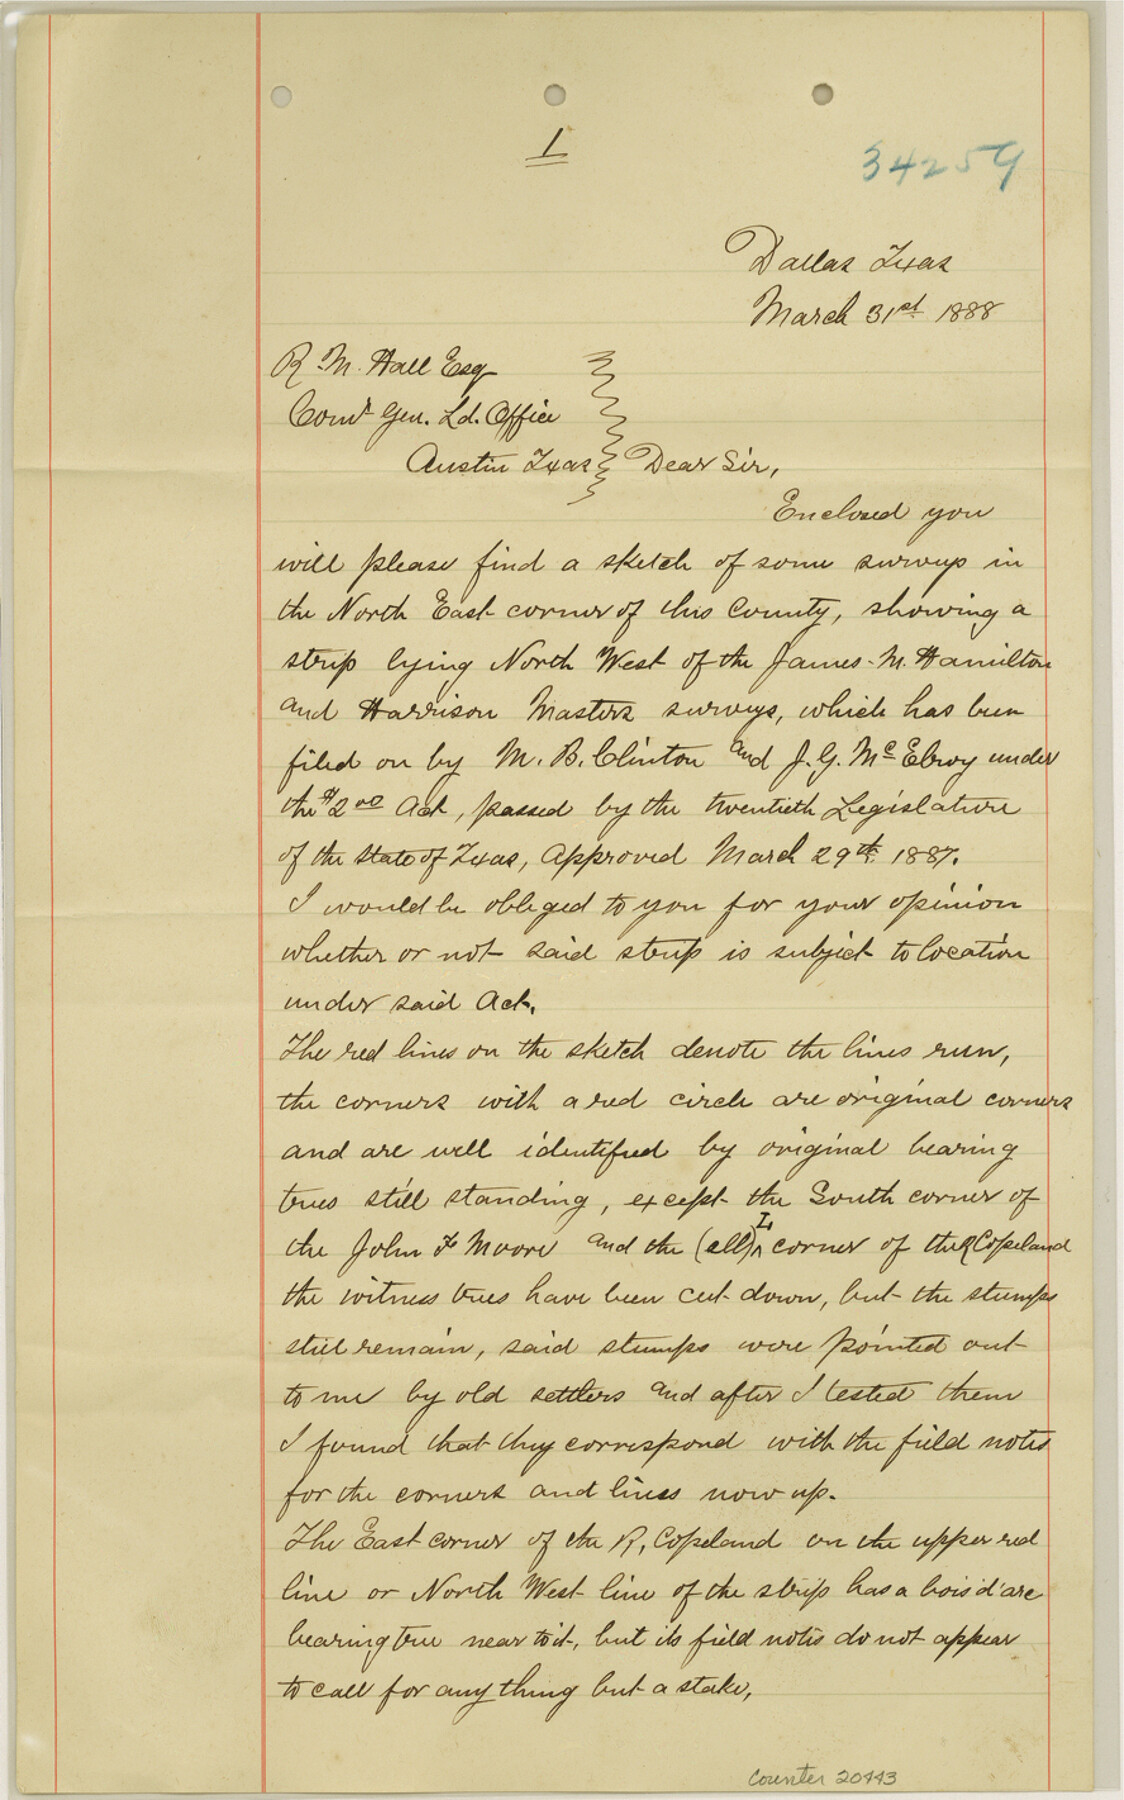 1
34259
Dallas Texas
March 31st 1888
R. M. Hall Esq
Comr Gen. Ld. Office
Austin Texas Dear Sir,
Enclosed you
will please find a sketch of some surveys in
the North East corner of this County, showing a
strip lying North West of the James M. Hamilton
and Harrison Masters surveys, which has been
filed on by M. B. Clinton and J. G. McElroy under
the $2.00 Act, passed by the twentieth Legislature
of the State of Texas, Approved March 29th 1887.
I would be obliged to you for your opinion
whether or not said strip is subject to location
under said Act.
The red lines on the sketch denote the lines run,
the corners with a red circle are original corners
and are well identified by original bearing
trees still standing, except the South corner of
the John F Moore and the (ell) L corner of the R Copeland
the witness trees have been cut down, but the stumps
still remain, said stumps were pointed out
to me by old settlers and after I tested them
I found that they correspond with the field notes
for the corners and lines now up.
The East corner of the R. Copeland on the upper red
line or North West line of the strip has a bois d'arc
bearing tree near to it, but its field notes do not appear
to call for any thing but a stake,
Counter 20443